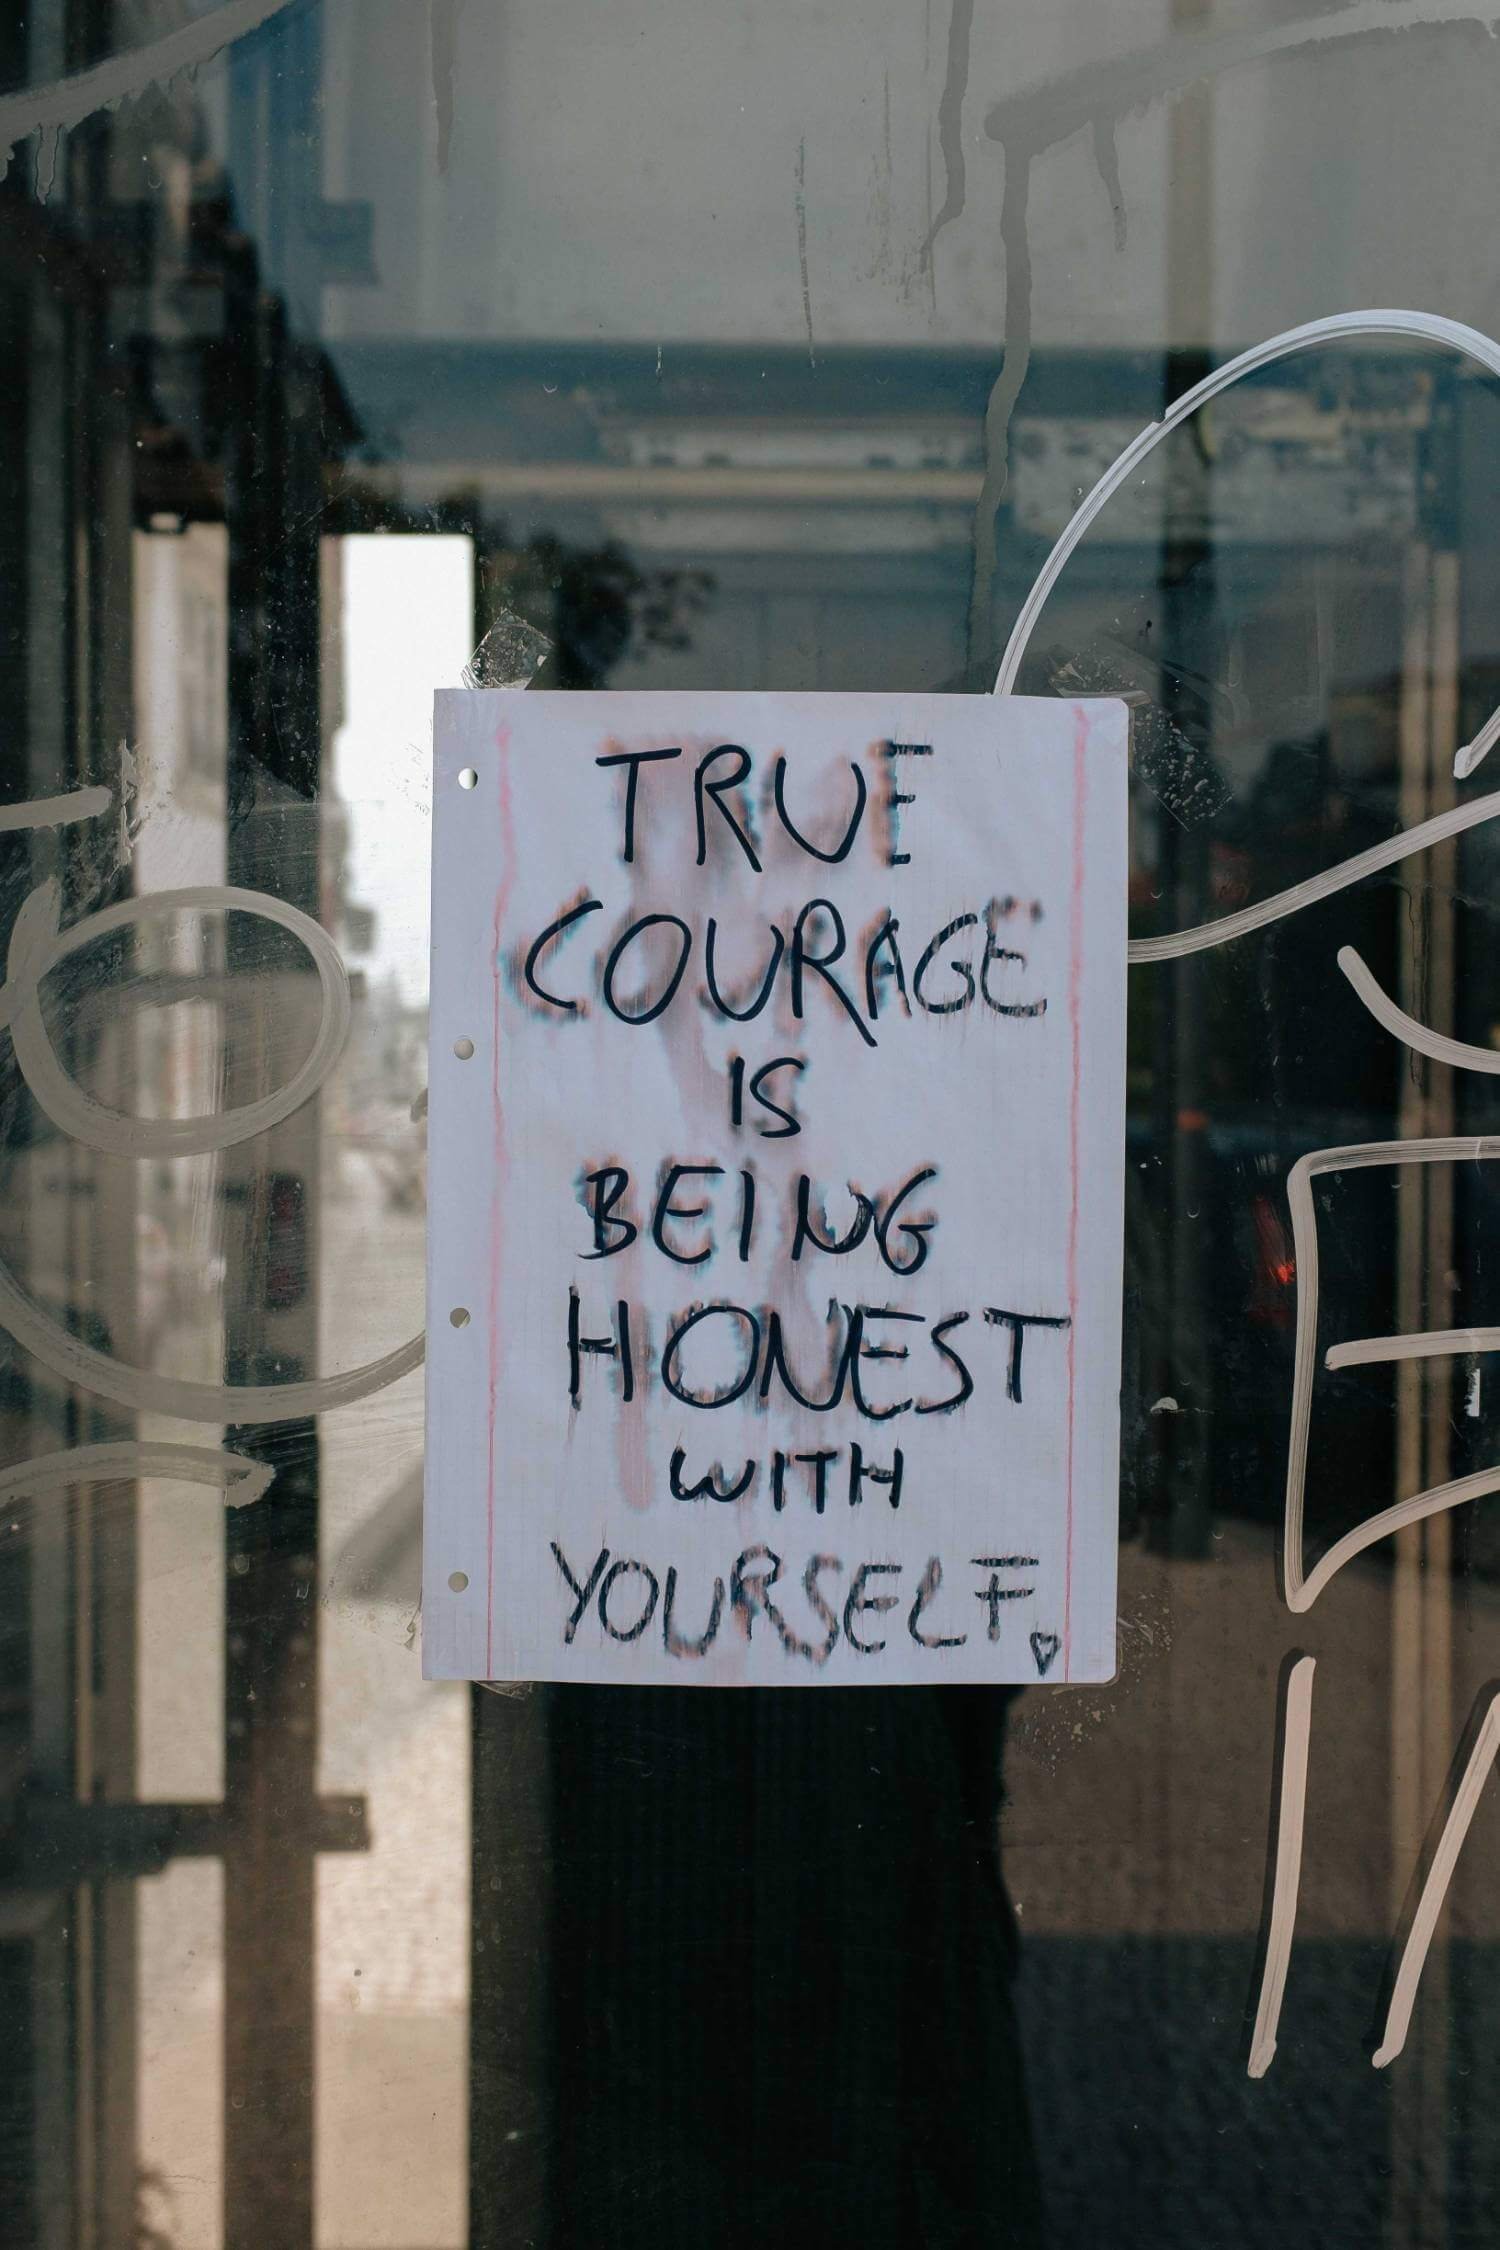 TRUE
COURAGE
IS
BEING
HONEST
WITH
YOURSELF.